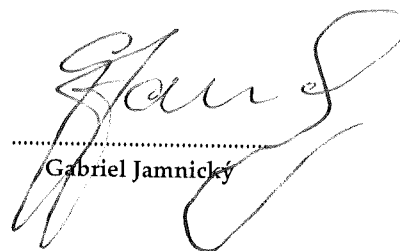 Gabriel Jamnický